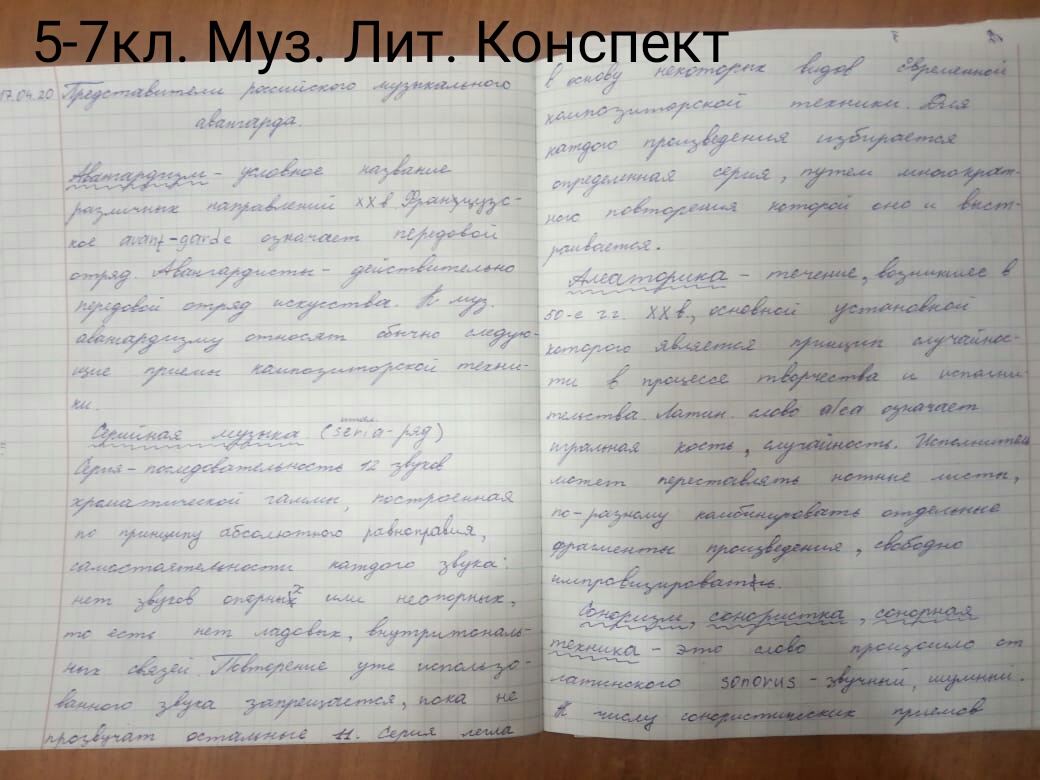 5-7кл. Муз. Лит. Конспект
17.04.20
Представители российского музыкального
авангарда.
Авангардизм - условное название
различных направлений XX в Французс-
кое avant-garde означает передовой
отряд. Авангардисты - действительно
передовой отряд искусства. К муз.
авангардизму относят обычно следую-
щие приемы композиторской техни-
ки.
Серийная музыка (seria - ряд)
Серия - последовательность 12 звуков
хроматической гаммы, построенная
по принципу абсолютного равноправия,
самостоятельности каждого звука:
нет звуков опорных или неопорных,
то есть нет ладовых, внутритональ-
ных связей. Повторение уже использо-
ванного звука запрещается, пока не
прозвучат остальные 11. Серия легла
в основу некоторых видов современной
композиторской техники. Для
каждого произведения избирается
определенная серия, путем многократ-
ного повторения которой оно и выст-
раивается.
Алеаторика - течение, возникшее в
50-е гг. XX в., основной установкой
которого является принцип случайнос-
ти в процессе творчества и исполни-
тельства. Латин. слово alea означает
игральная кость, случайность. Исполнитель
может переставлять нотные листы,
по-разному комбинировать отдельные
фрагменты произведения, свободно
импровизировать.
Соноризм, сонористка, сонорная
техника - это слово произошло от
латинского sonorus - звучный, шумный.
К числу сонористических приемов